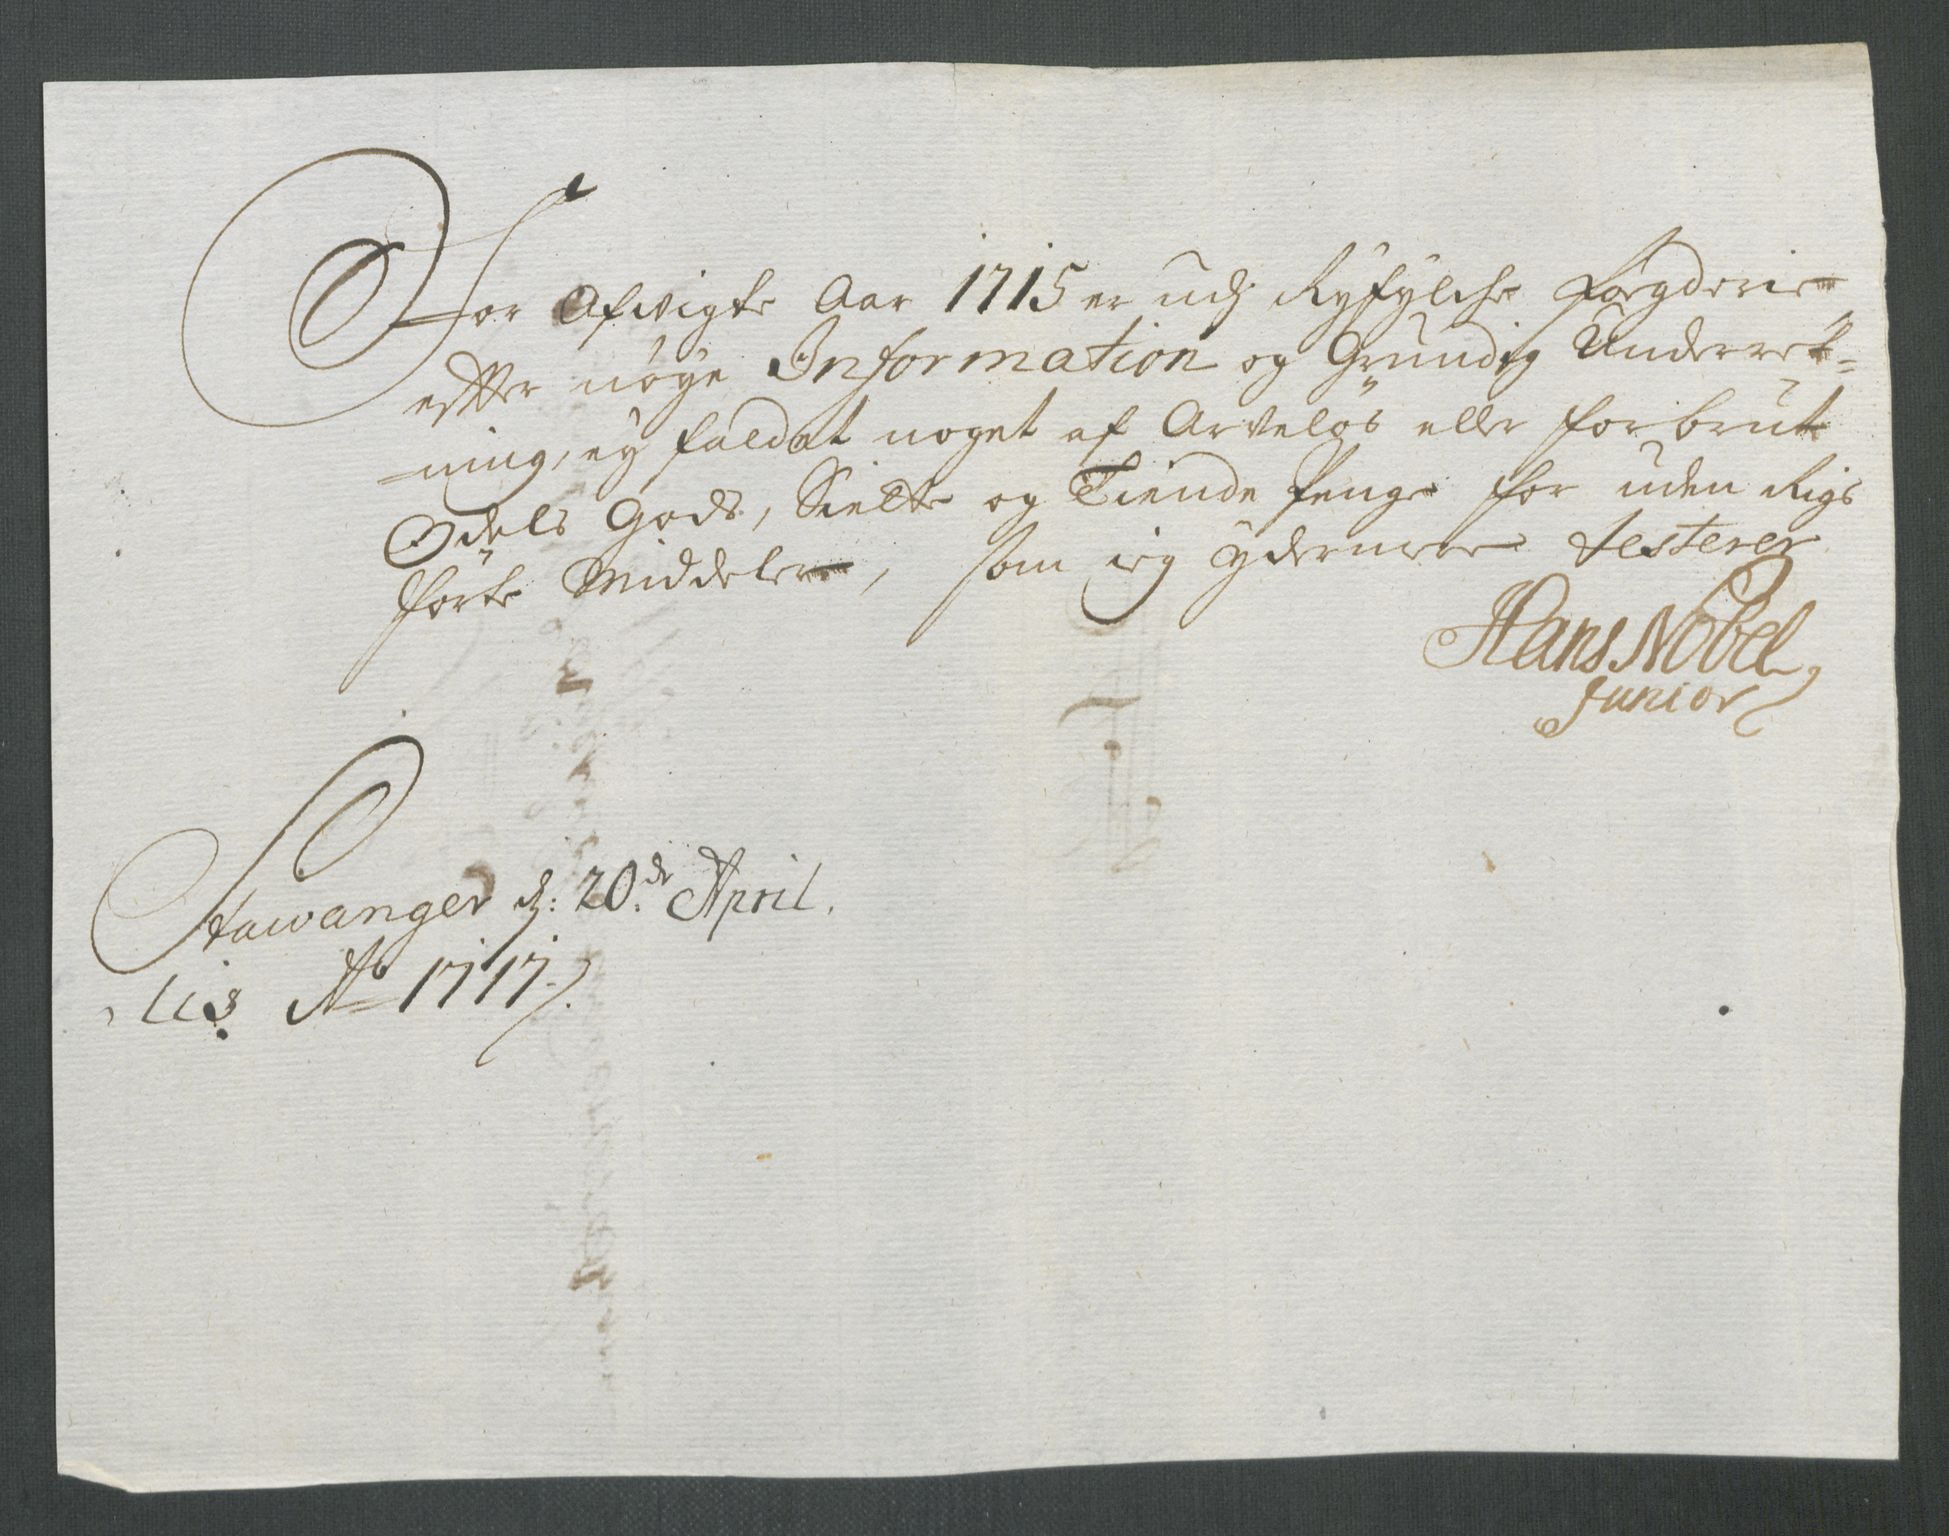 For Afvigte Aar 1715 er udj Ryfylche Fogderie
efter nøye Information og Grundig Underret=
ning, ey faldet noget af Arveløs eller forbrut
Odels Gods, Siette og Tiende Penge for uden Rigs
førte Middeler, som ieg ydermere testerer
Hans Nobel
Junior
Stawanger d: 20de April.
lis Ao 1717.